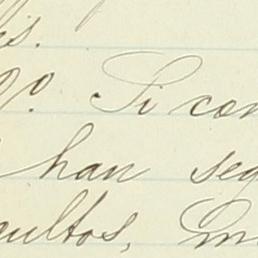 is.
º. Si con
han seg
cultos, m